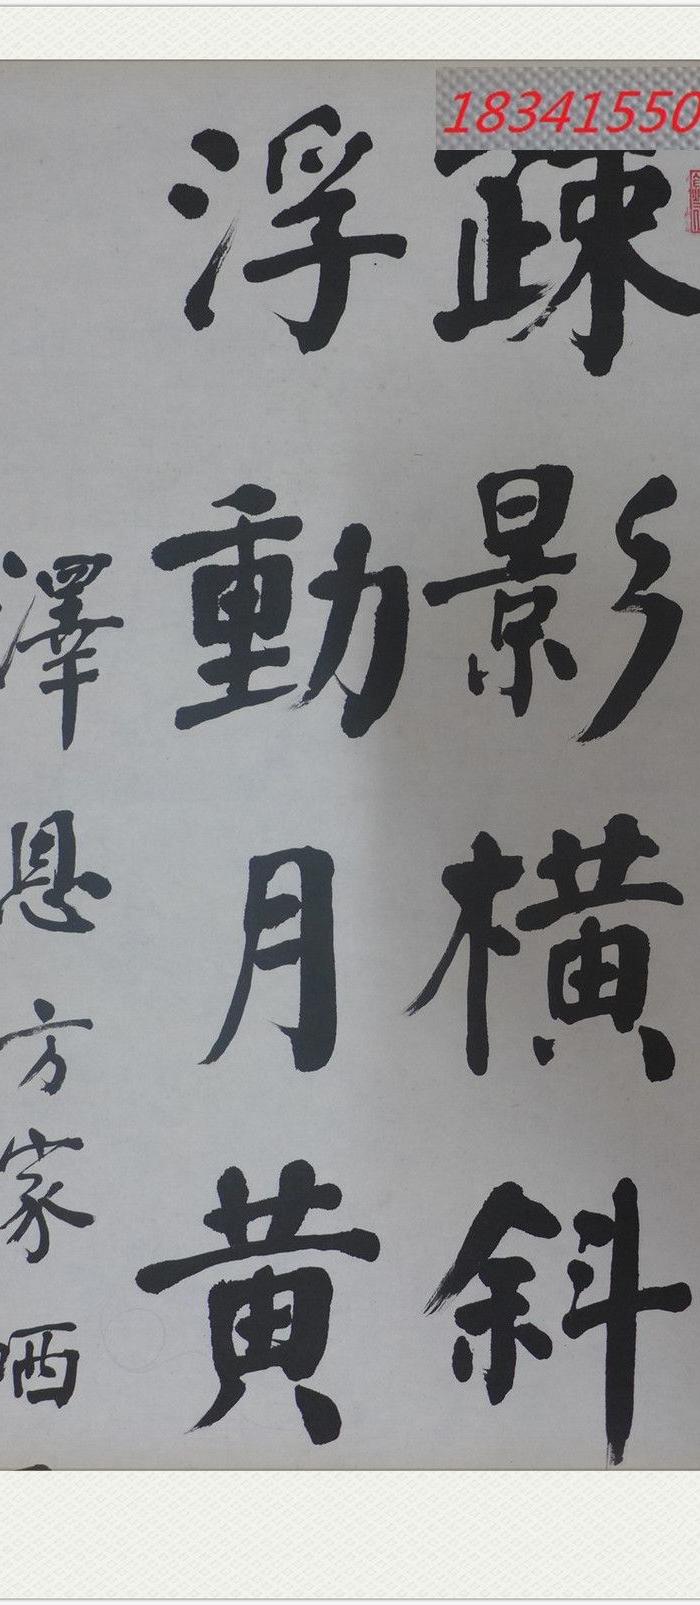 疎影橫斜
浮動月黄
澤恩方家哂
18341550